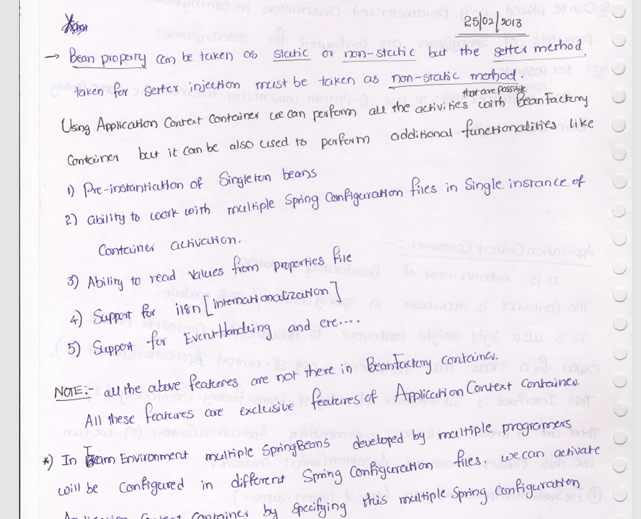 25/02/2013
→ Bean property can be taken as static or non-static but the setter method
taken for setter injection must be taken as non-static method.
Using Application Context Container we can perform all the activities that are possible with BeanFactory
Container but it can be also used to perform additional functionalities like
1) Pre-instantiation of Singleton beans
2) ability to work with multiple Spring Configuration files in Single instance of
Container activation.
3) Ability to read values from properties file
4) Support for i18n [internationalization]
5) Support for EventHandling and etc....
NOTE:- all the above features are not there in BeanFactory container.
All these features are exclusive features of Application Context container.
*) In Team Environment multiple SpringBeans developed by multiple programers
will be configured in different Spring Configuration files. we can activate
Application Context Container by specifying this multiple Spring Configuration